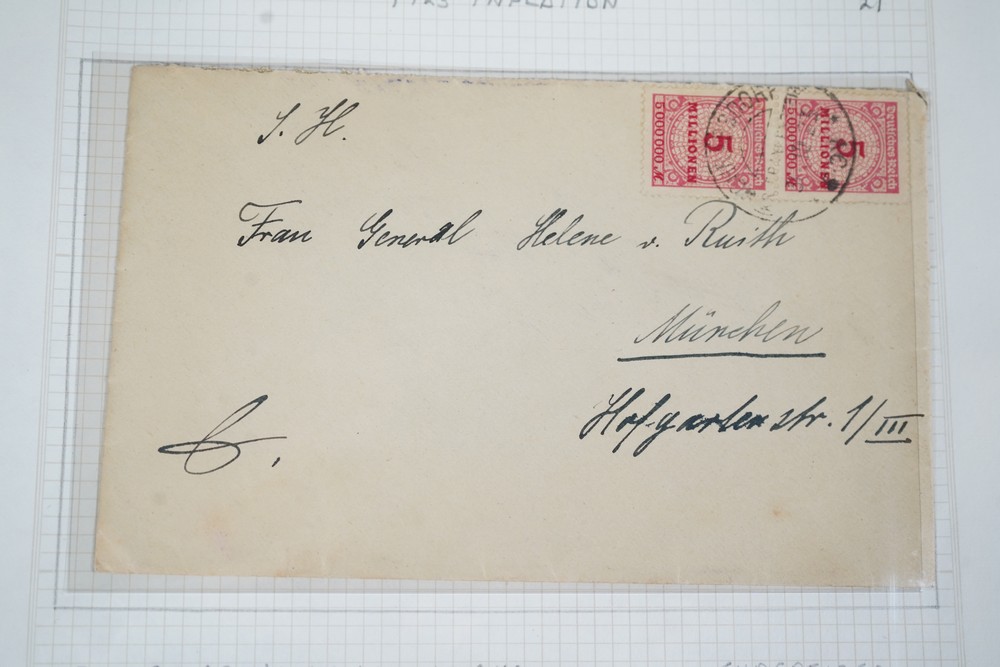 1923 INFLATION
21
S. H.
5
MILLIONEN
5000000 M
5
MILLIONEN
5000000 M
Deutsches Reich
Frau General Helene v. Ruith
München
Hofgartenstr. 1/III